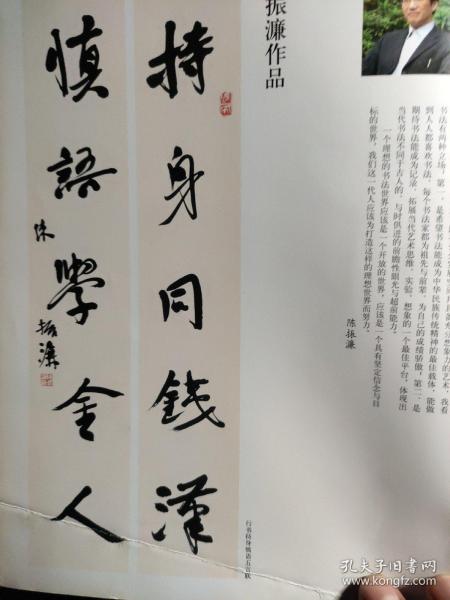 想象力的艺术，我看
书法有两种立场，第一，是希望书法能成为中华民族传统精神的最佳载体，能做
到人人都喜欢书法，每个书法家都为祖先与前辈、为自己的成绩骄傲，第二，是
期待书法能成为记录、拓展当代艺术思维、实验、想象的一个最佳平台，体现出
当代书法不同于古人的、与时俱进的前瞻性眼光与超前能力。
一个理想的书法世界应该是一个开放的世界，应该是一个具有坚定信念与目
标的世界，我们这一代人应该为打造这样的理想世界而努力。
陈振濂
振濂作品
行书持身慎语五言联
持身同錢漢
慎語學金人
陳振濂
孔夫子旧书网